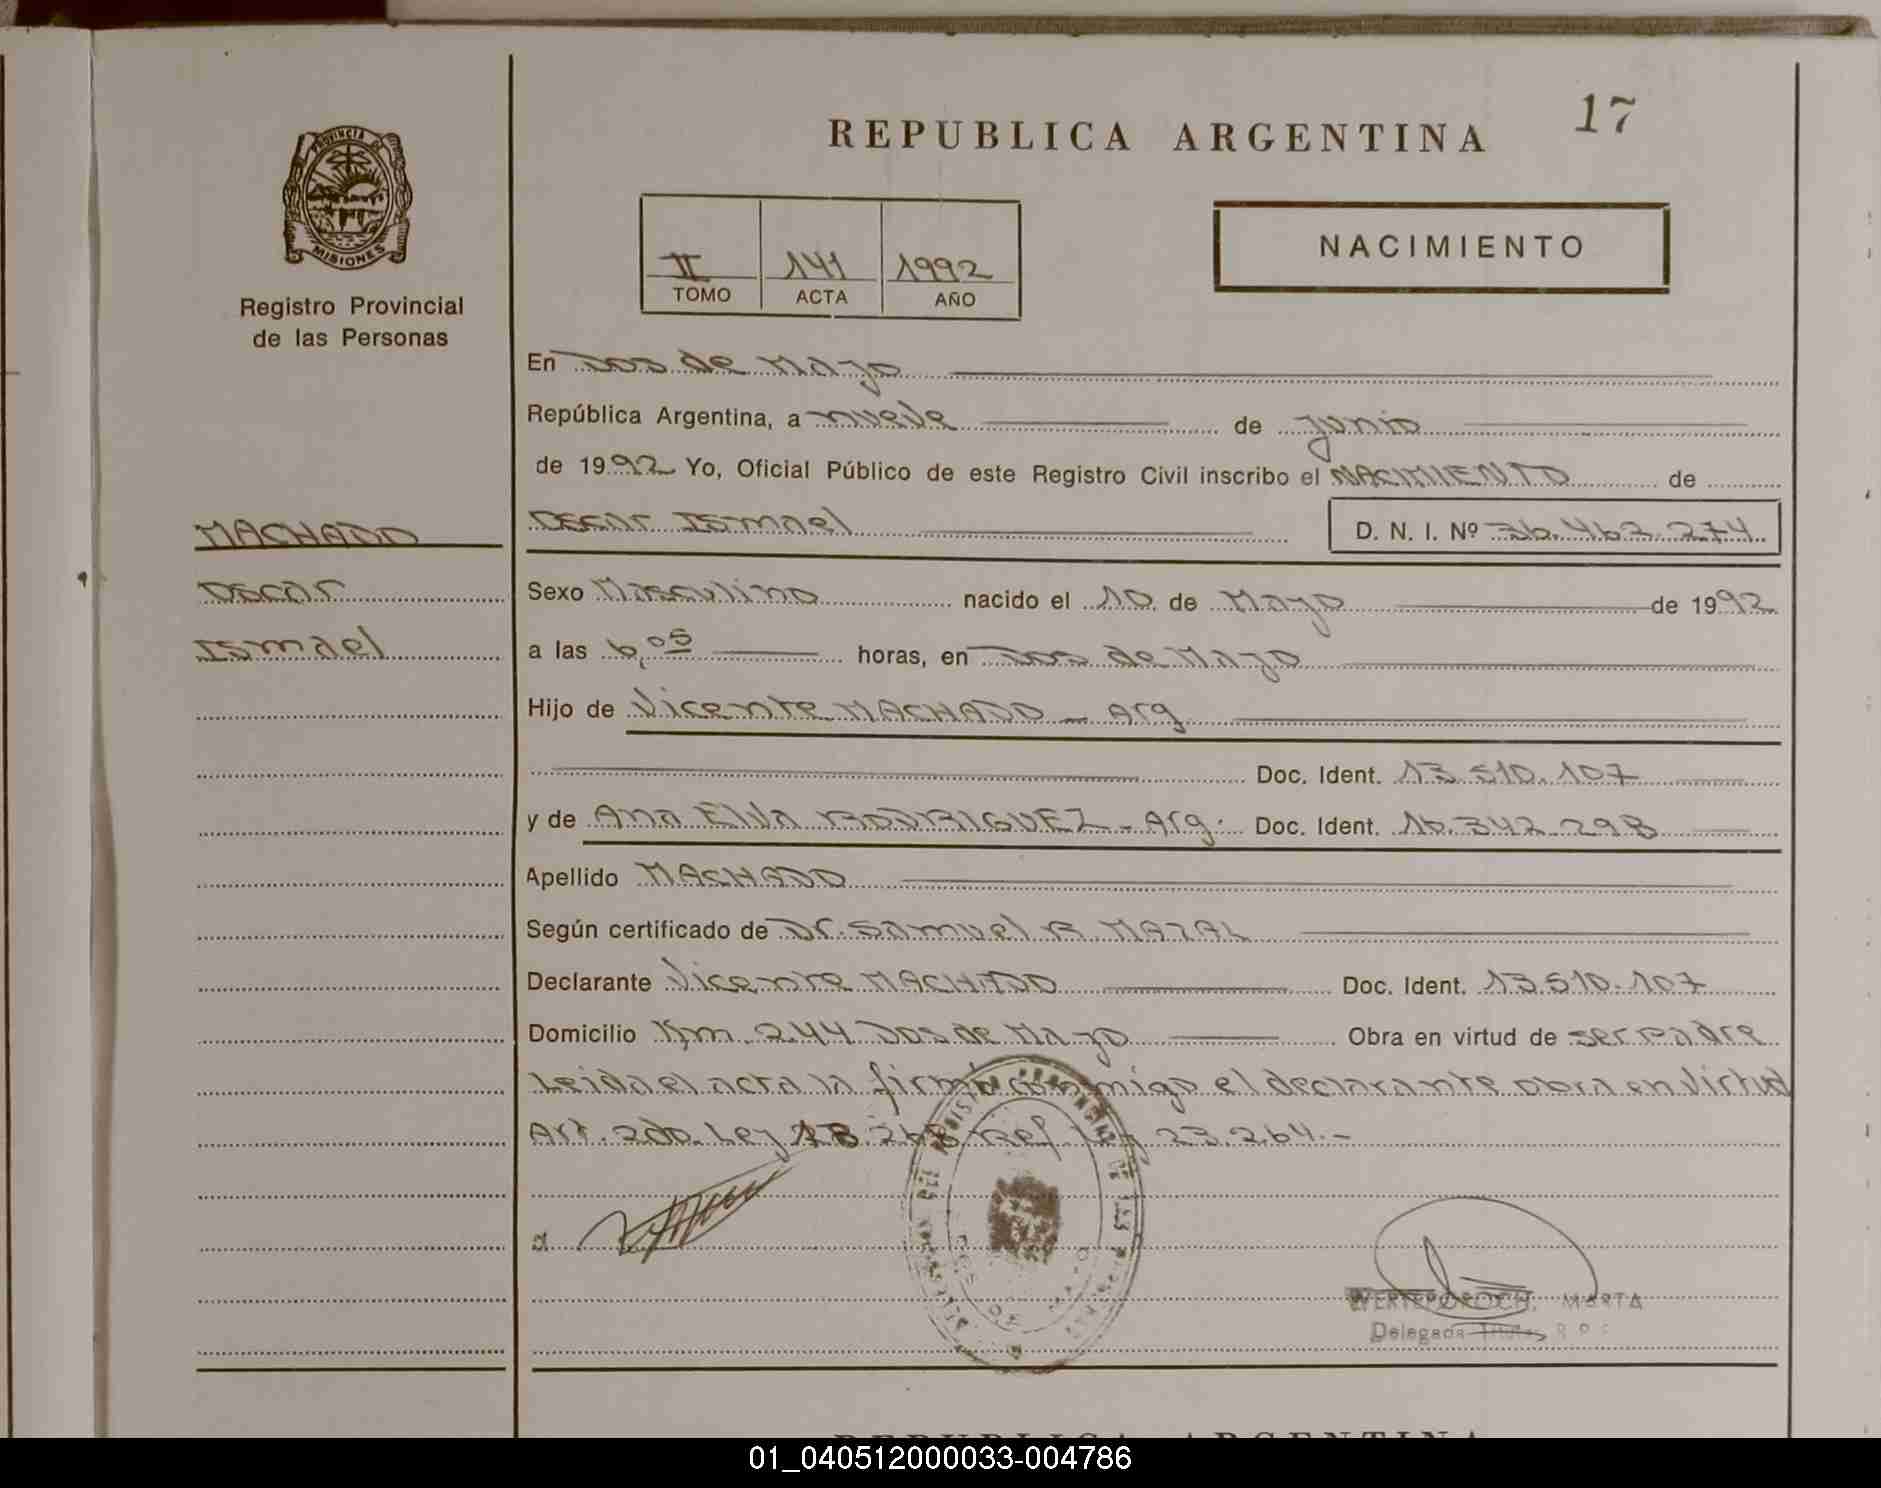 17
REPUBLICA ARGENTINA
PROVINCIA DE
MISIONES
Registro Provincial
de las Personas
II 141 1992
TOMO ACTA AÑO
NACIMIENTO
En Dos de Mayo
República Argentina, a nueve de junio
de 1992 Yo, Oficial Público de este Registro Civil inscribo el NACIMIENTO de
MACHADO
Oscar Ismael D. N. I. Nº 36.463.274
Oscar
Sexo Masculino nacido el 10 de Mayo de 1992
Ismael
a las 6,05 horas, en Dos de Mayo
Hijo de Vicente MACHADO - Arg
Doc. Ident. 13.510.107
y de Ana Elva RODRIGUEZ - Arg. Doc. Ident. 16.342.298
Apellido MACHADO
Según certificado de Dr. Samuel R. MAZAL
Declarante Vicente MACHADO Doc. Ident. 13.510.107
Domicilio Km. 244 Dos de Mayo Obra en virtud de ser padre
Leida el acta la firma conmigo el declarante obra en virtud
Art. 2do. Ley 18.248 Ley 23.264.-
DOS DE MAYO
MARTA
Delegada Titular R P
REPUBLICA ARGENTINA
01_040512000033-004786